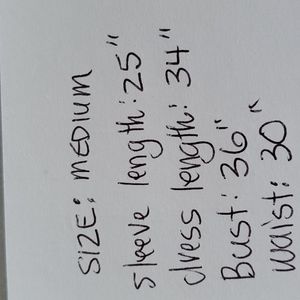 SIZE: MEDIUM
sleeve length: 25"
dress length: 34"
Bust: 36"
waist: 30"